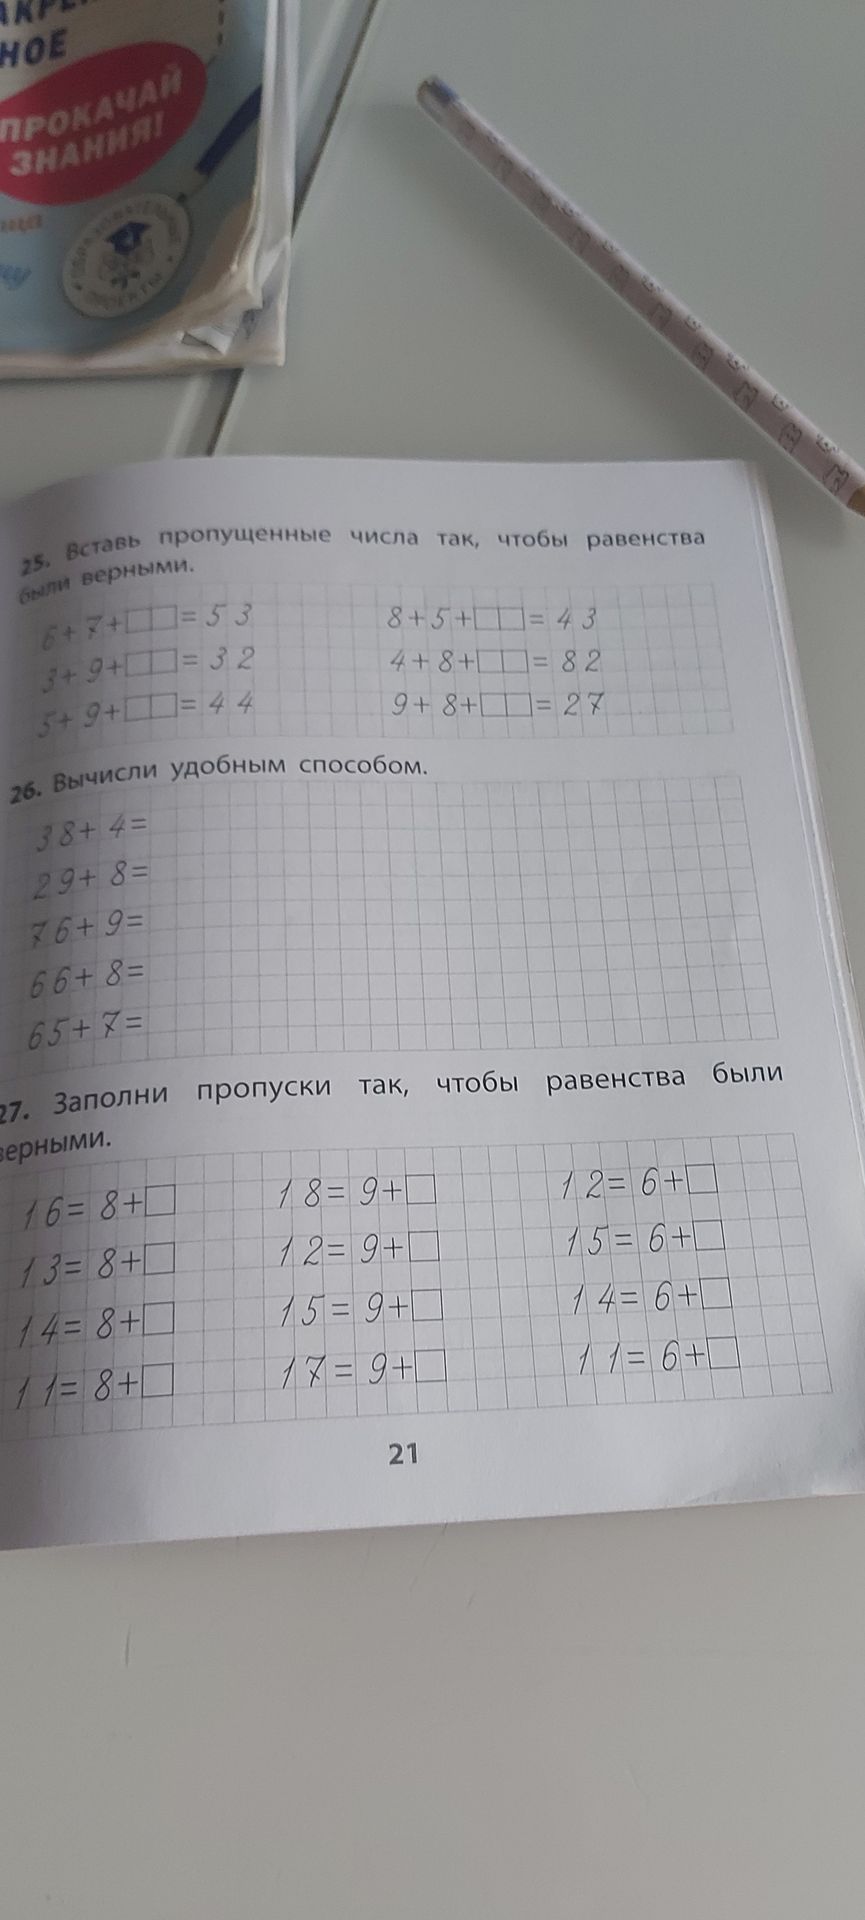 НОЕ
ПРОКАЧАЙ
ЗНАНИЯ!
25. Вставь пропущенные числа так, чтобы равенства
были верными.
6+7+□□=53 8+5+□□=43
3+9+□□=32 4+8+□□=82
5+9+□□=44 9+8+□□=27
26. Вычисли удобным способом.
38+4=
29+8=
76+9=
66+8=
65+7=
27. Заполни пропуски так, чтобы равенства были
верными.
16=8+□ 18=9+□ 12=6+□
13=8+□ 12=9+□ 15=6+□
14=8+□ 15=9+□ 14=6+□
11=8+□ 17=9+□ 11=6+□
21